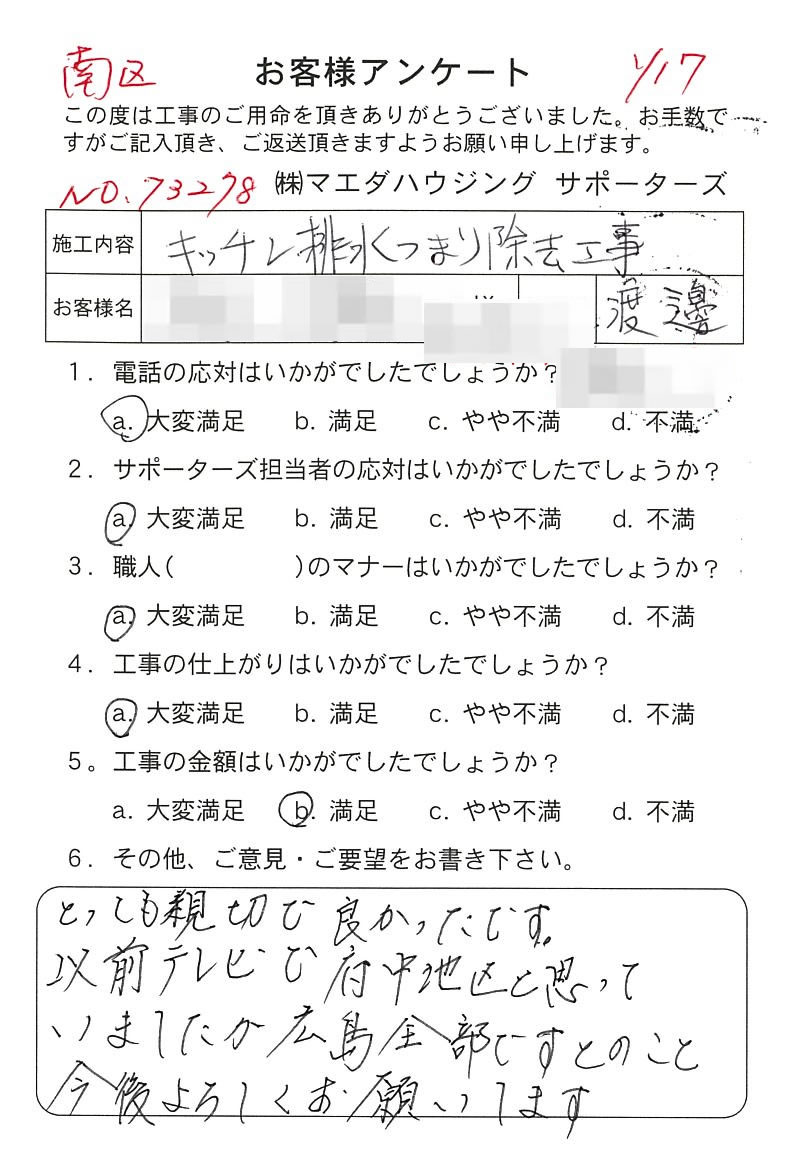 南区 お客様アンケート 1/17
この度は工事のご用命を頂きありがとうございました。お手数で
すがご記入頂き、ご返送頂きますようお願い申し上げます。
NO.73278 ㈱マエダハウジング サポーターズ
施工内容 キッチン排水つまり除去工事
お客様名 渡邊
1. 電話の応対はいかがでしたでしょうか?
a. 大変満足 b. 満足 c. やや不満 d. 不満
2. サポーターズ担当者の応対はいかがでしたでしょうか?
a. 大変満足 b. 満足 c. やや不満 d. 不満
3. 職人( )のマナーはいかがでしたでしょうか?
a. 大変満足 b. 満足 c. やや不満 d. 不満
4. 工事の仕上がりはいかがでしたでしょうか?
a. 大変満足 b. 満足 c. やや不満 d. 不満
5。工事の金額はいかがでしたでしょうか?
a. 大変満足 b. 満足 c. やや不満 d. 不満
6. その他、ご意見・ご要望をお書き下さい。
とっても親切で良かったです。
以前テレビで府中地区と思って
いましたが広島全部ですとのこと
今後よろしくお願いします